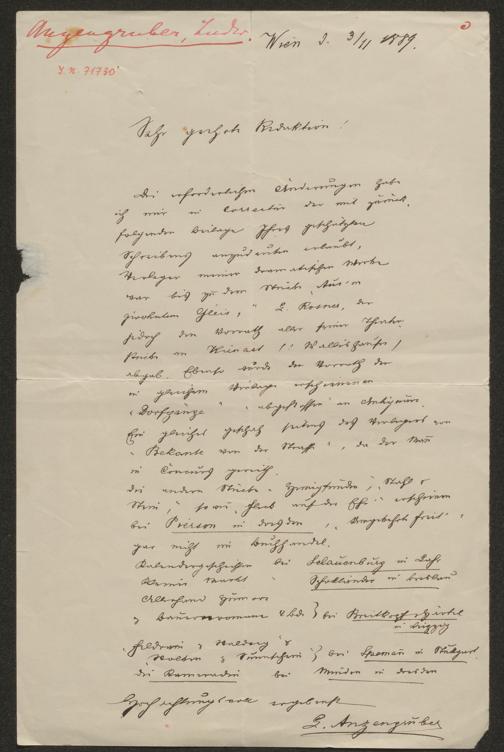 Anzengruber, Ludw.
Wien d. 3/11 1889.
J. N. 71730
Sehr geehrte Redaktion!
Die erforderlichen Änderungen habe
ich mir in Correctur der mit zurück-
folgenden Beilage Ihres geschätzten
Schreibens anzudeuten erlaubt,
Verleger meiner dramatischen Werke
war bis zu dem Stücke „Aus'm
gewohnten Gleis," L. Rosner, der
jedoch den Vorrath aller seiner Theater-
stücke an Künast (Wallishauser)
abgab. Ebenso wurde der Vorrath der
in gleichem Verlage erschienenen
„Dorfgänge" abgestossen an Antiquare.
Ein gleiches geschah seitens des Verlegers von
„Bekannte von der Strasse", da der Mann
in Concurs gerieth.
Die andern Stücke „Heimg'funden", „Stahl u
Stein", sowie „Fleck auf der Ehr" erschienen
bei Pierson in Dresden, „Umgekehrte Freit"
gar nicht im Buchhandel.
Kalendergeschichten bei Schauenburg in Lahr
Kleiner Markt " Schottländer in Breslau
Allerhand Humore
u Bauernromane 2 Bd. } bei Breitkopf u Härtel
in Leipzig
Feldrain u Waldweg u
Wolken u Sunn'schein } bei Spemann in Stuttgart
die Kameradin bei Minden in Dresden
Hochachtungsvoll ergebenst
L. Anzengruber